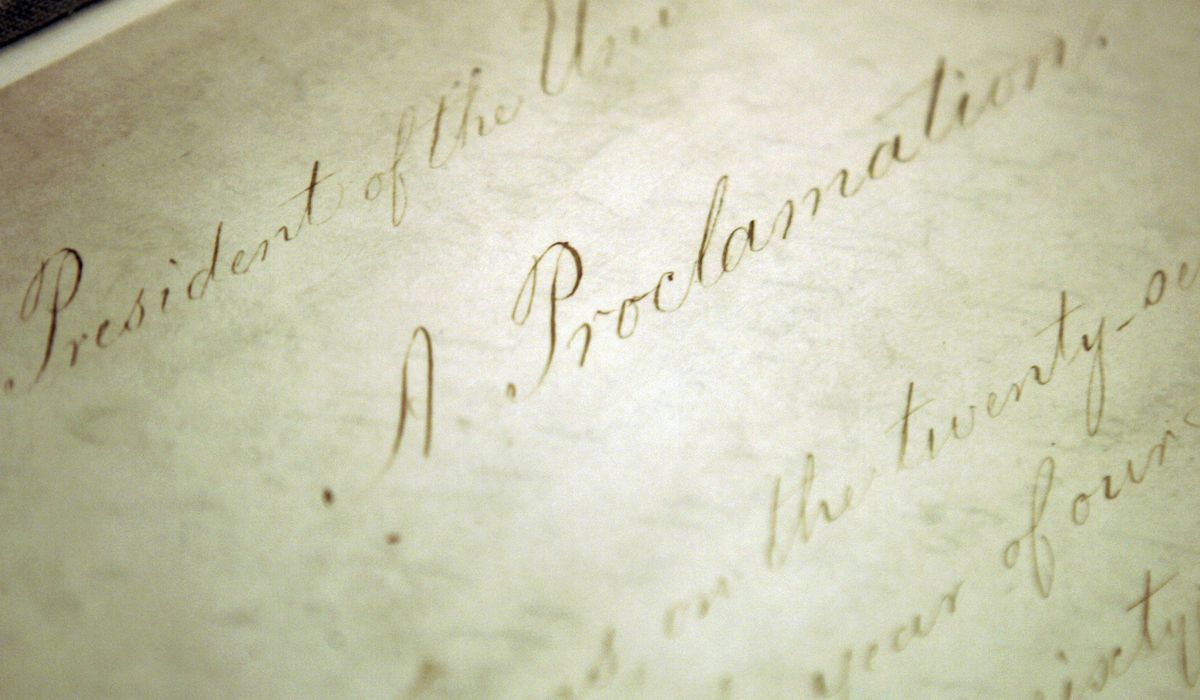 President of the Uni
A Proclamation.
on the twenty-se
year of our
ixty